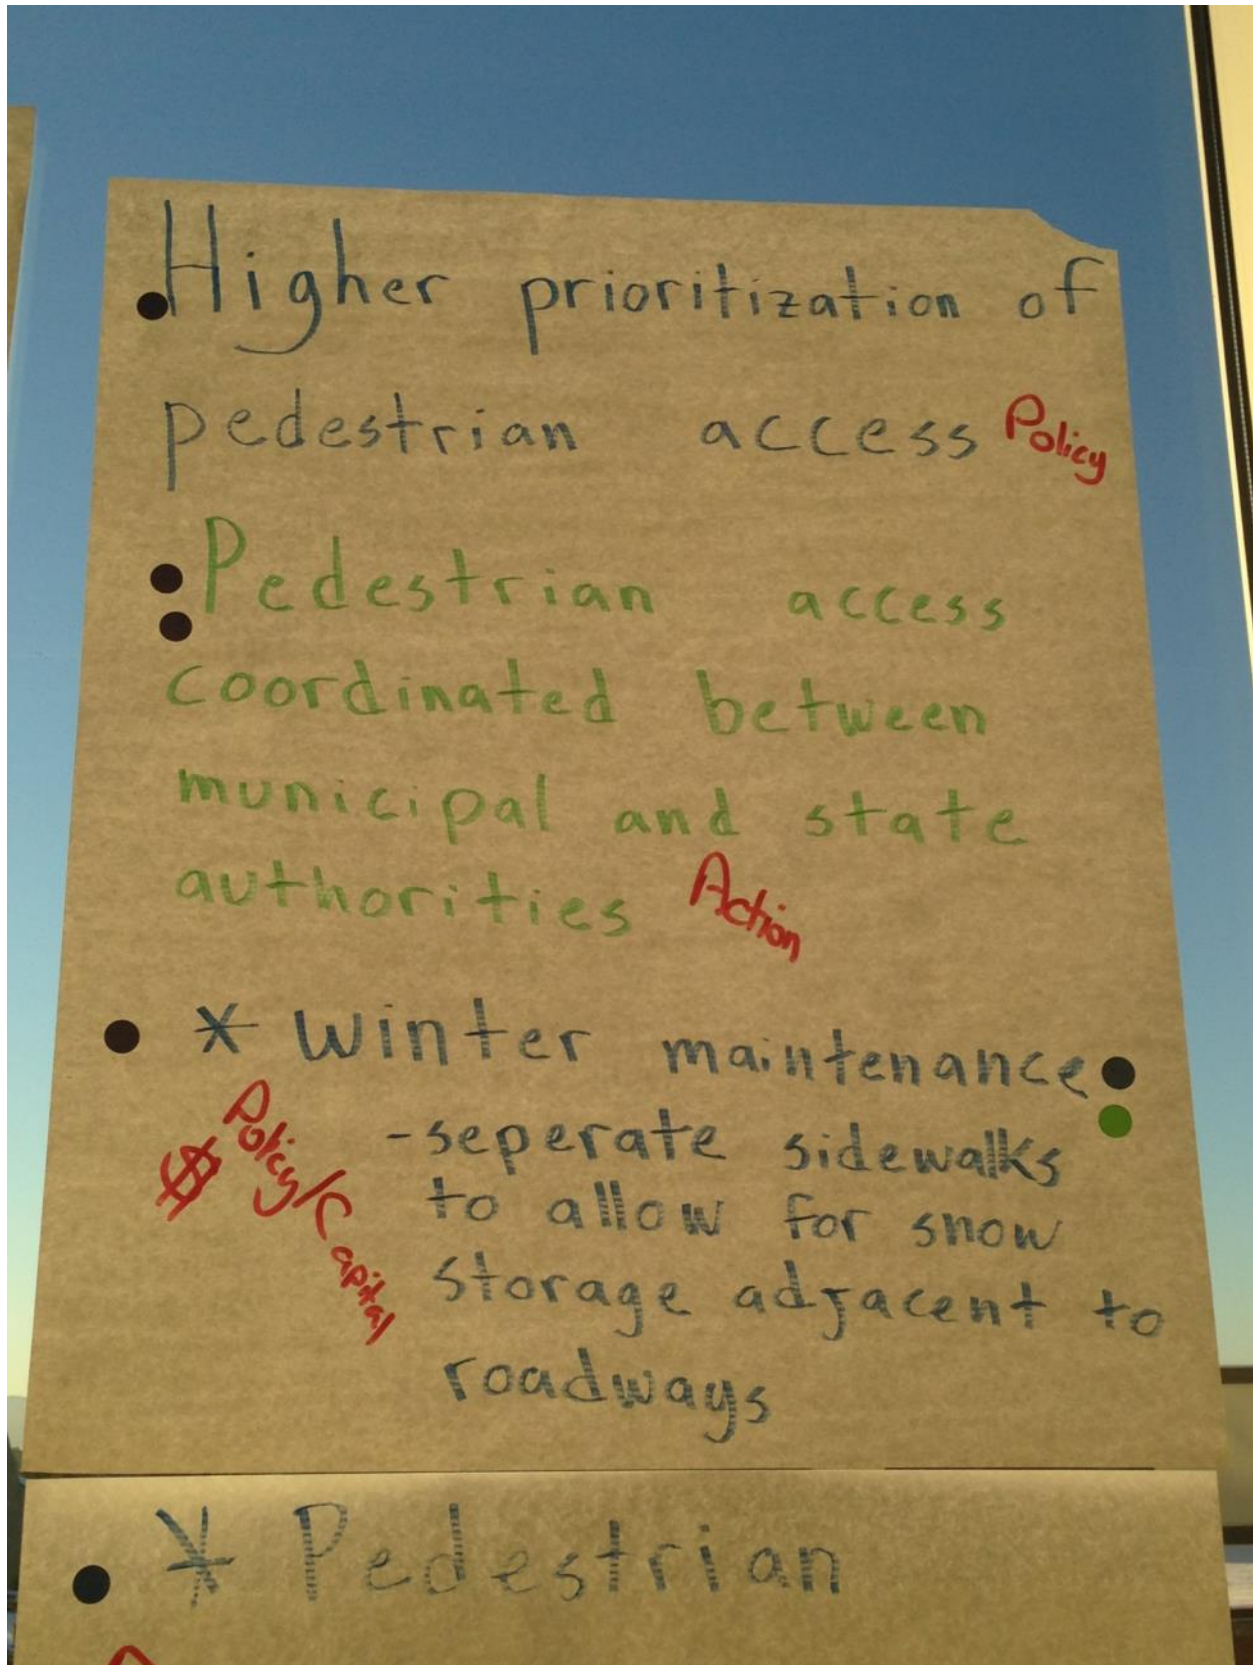 Higher prioritization of
pedestrian access Policy
Pedestrian access
coordinated between
municipal and state
authorities Action
* Winter maintenance
$ Policy/Capital
- seperate sidewalks
to allow for snow
storage adjacent to
roadways
* Pedestrian